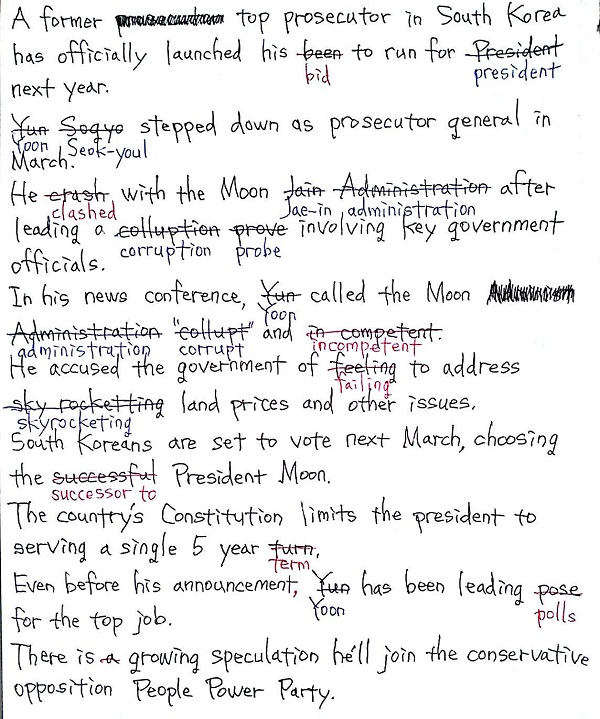 A former top prosecutor in South Korea
has officially launched his been to run for President
bid president
next year.
Yun Sogyo stepped down as prosecutor general in
Yoon Seok-youl
March.
He crash with the Moon Jain Administration after
clashed Jae-in administration
leading a colluption prove involving key government
corruption probe
officials.
In his news conference, Yun called the Moon
Yoon
Administration "collupt" and in competent.
administration corrupt incompetent
He accused the government of feeling to address
failing
sky rocketting land prices and other issues.
skyrocketing
South Koreans are set to vote next March, choosing
the successful President Moon.
successor to
The country's Constitution limits the president to
serving a single 5 year turn.
term
Even before his announcement, Yun has been leading pose
Yoon polls
for the top job.
There is a growing speculation he'll join the conservative
opposition People Power Party.